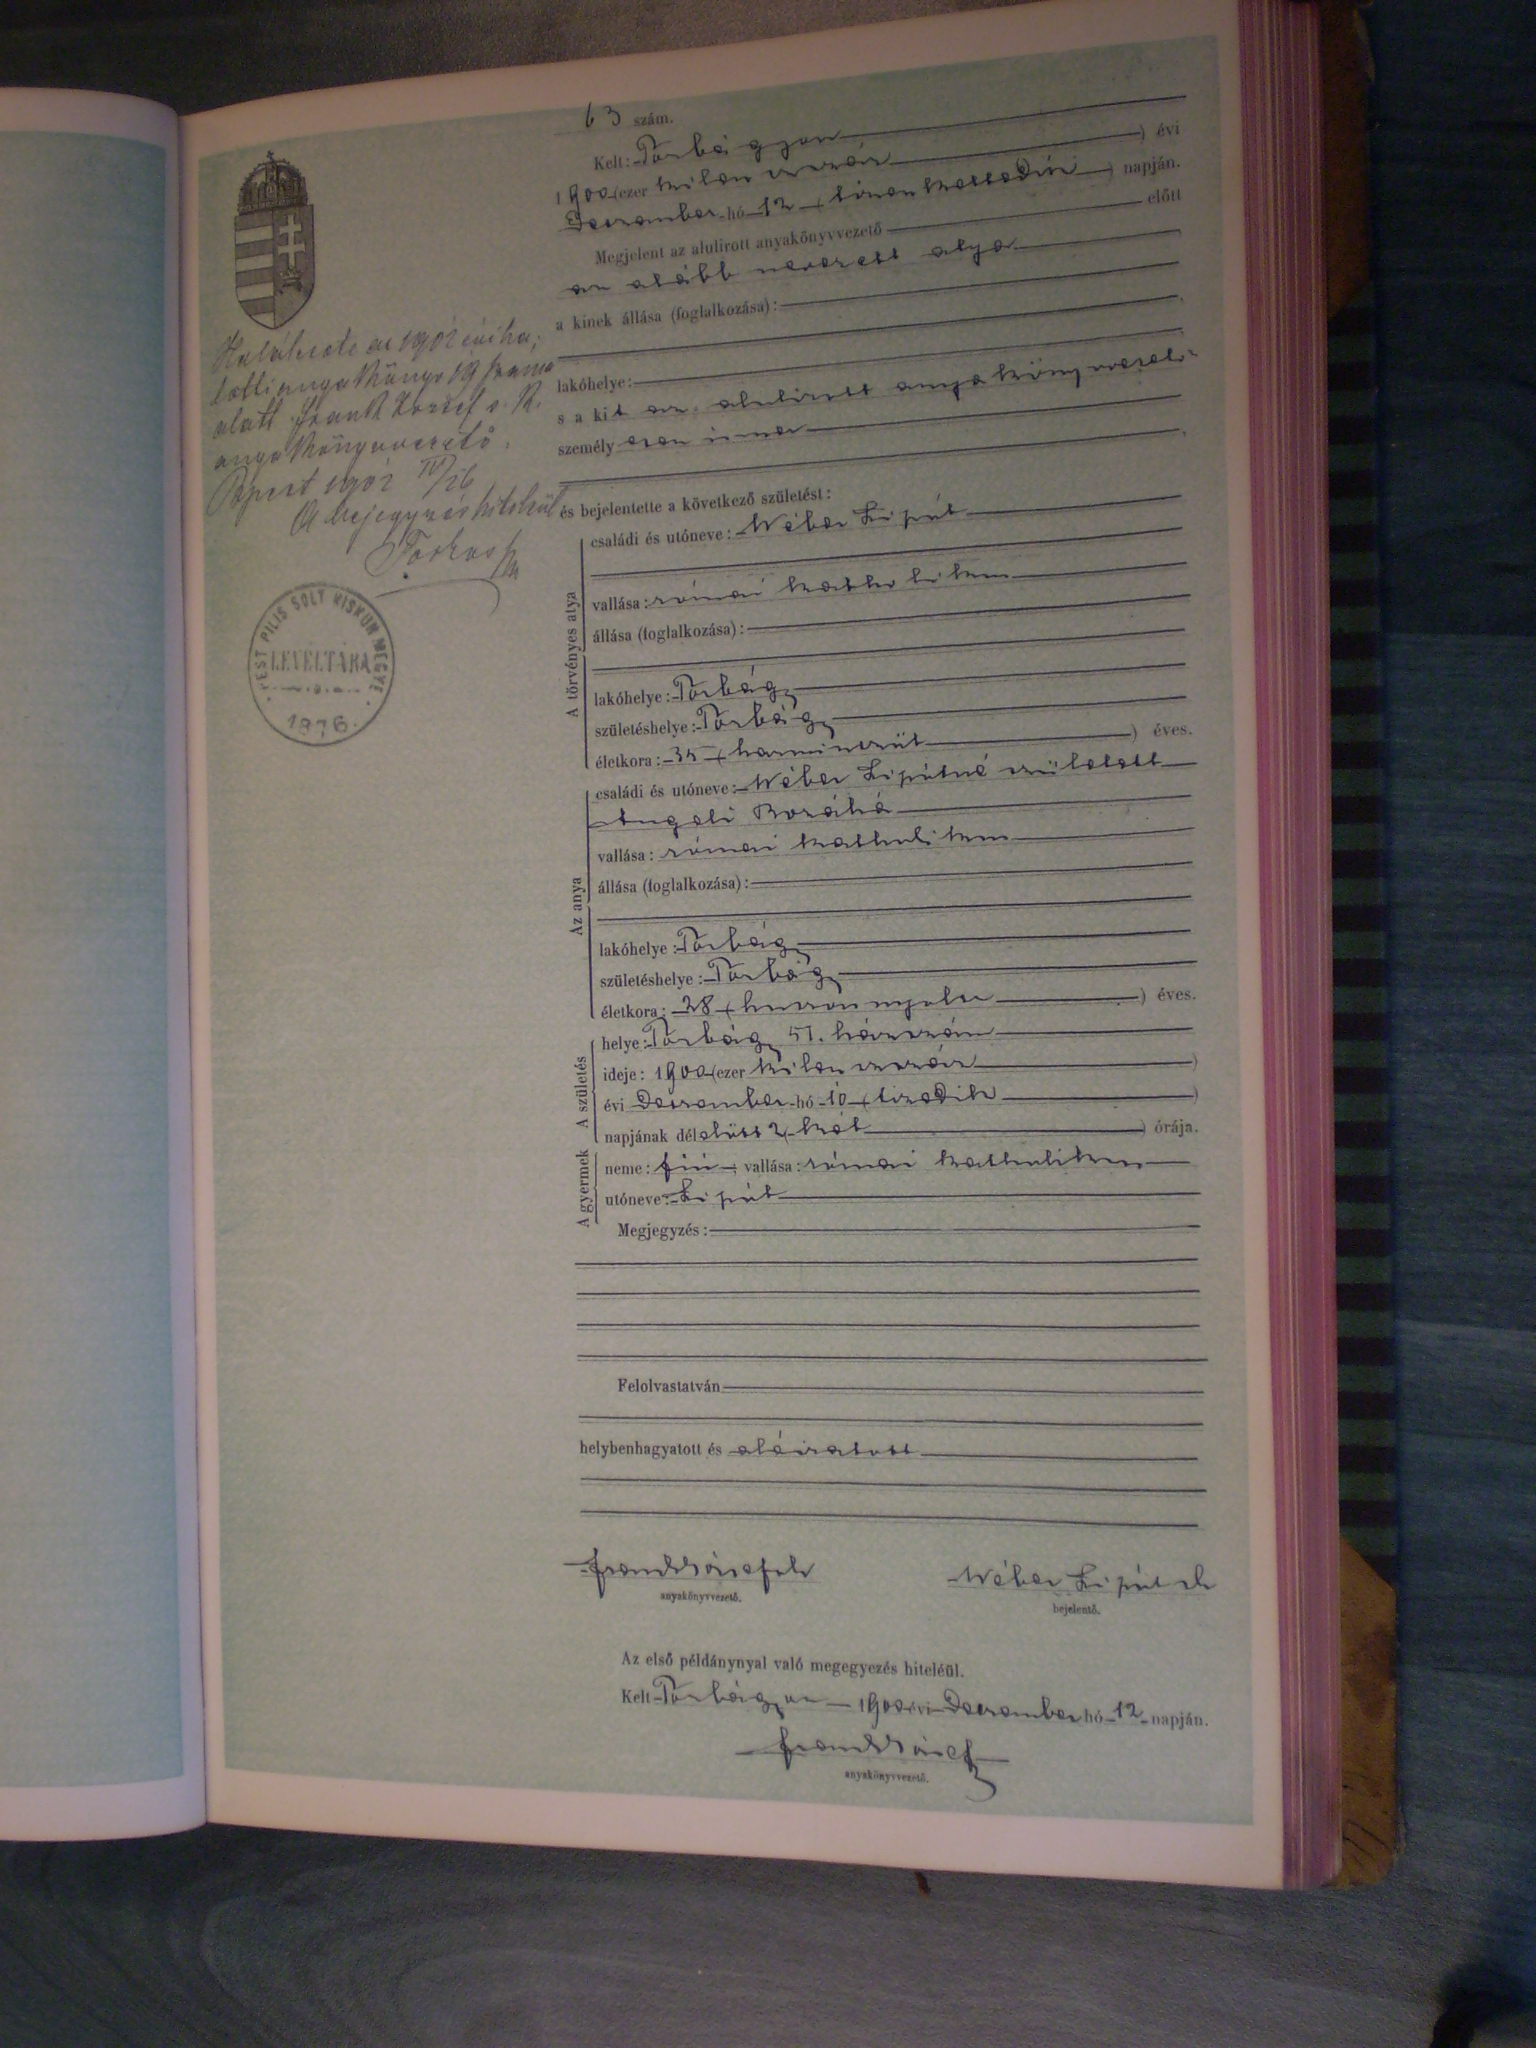 63 szám.
Kelt: Torbágyon ) évi
1900 (ezer kilenczszáz
December hó 12 (tizenkettedik ) napján.
Megjelent az alulirott anyakönyvvezető előtt
az alább nevezett atya
a kinek állása (foglalkozása):
lakóhelye:
s a kit az alulirott anyakönyvvezető
személyesen ismer
és bejelentette a következő születést:
A törvényes atya
családi és utóneve: Wéber Lipót
vallása: római katholikus
állása (foglalkozása):
lakóhelye: Torbágy
születéshelye: Torbágy
életkora: 35 (harminczöt ) éves.
Az anya
családi és utóneve: Wéber Lipótné született
Angeli Rozália
vallása: római katholikus
állása (foglalkozása):
lakóhelye: Torbágy
születéshelye: Torbágy
életkora: 28 (huszonnyolcz ) éves.
A születés
helye: Torbágy 51. házszám
ideje: 1900 (ezer kilenczszáz )
évi December hó 10 (tizedik )
napjának délelőtt 2 (két ) órája.
A gyermek
neme: fiú ; vallása: római katholikus
utóneve: Lipót
Megjegyzés:
Felolvastatván
helybenhagyatott és aláiratott
Frank József sk Wéber Lipót sk
anyakönyvvezető. bejelentő.
Az első példánynyal való megegyezés hiteléül.
Kelt Torbágyon 1900 évi December hó 12 napján.
Frank József
anyakönyvvezető.
Halálesete az 1902 évi ha-
lotti anyakönyv 19 száma
alatt Frank József s. k.
anyakönyvvezető.
Bpest 1902 IV/26
A bejegyzés hiteléül
Farkas
PEST PILIS SOLT KISKUN MEGYE
LEVÉLTÁRA
1876.